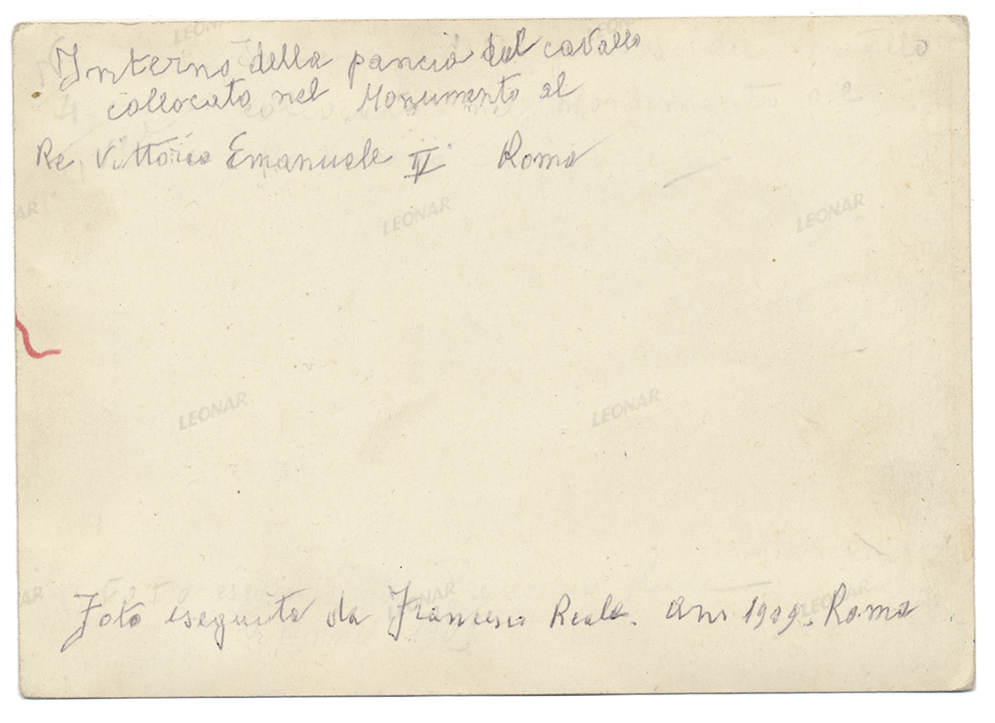 Interno della pancia del cavallo
collocato nel Monumento al
Re Vittorio Emanuele IV Roma
LEONAR
LEONAR
LEONAR
LEONAR
Foto eseguita da Francesco Reale. Ann 1909. Roma